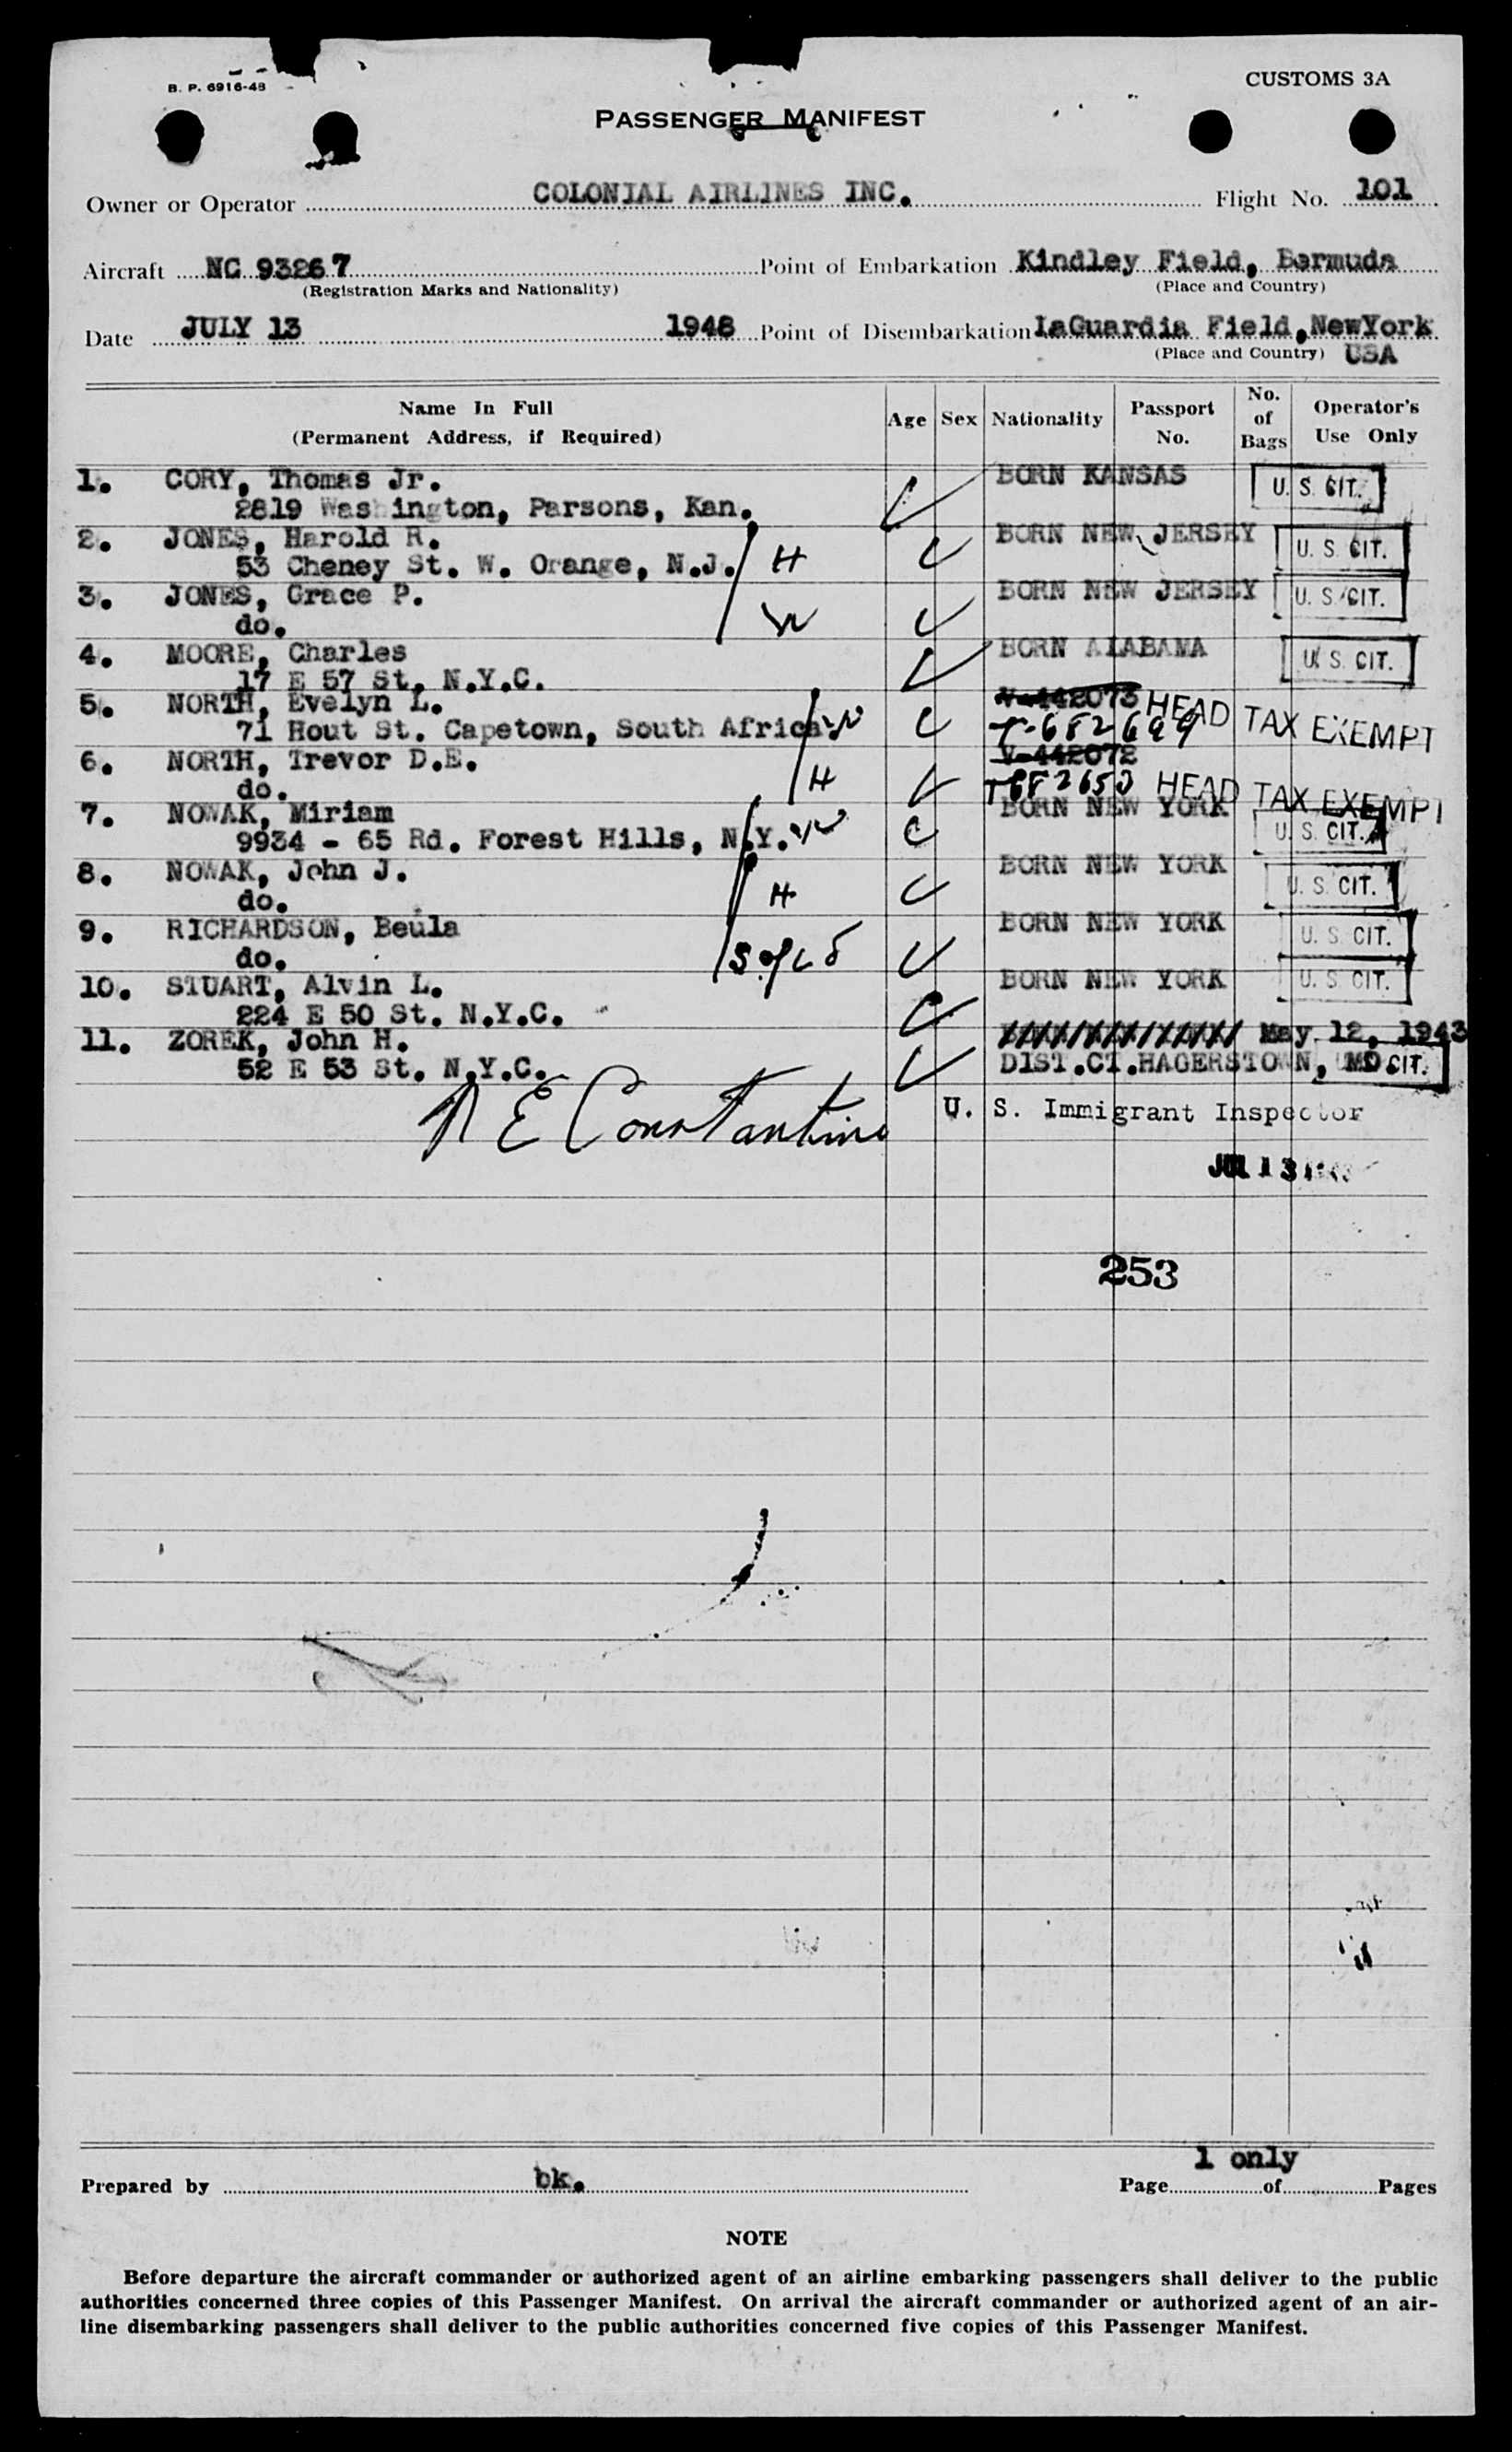 B. P. 6916-48
CUSTOMS 3A
PASSENGER MANIFEST
Owner or Operator COLONIAL AIRLINES INC. Flight No. 101
Aircraft NC 93267 Point of Embarkation Kindley Field, Bermuda
(Registration Marks and Nationality) (Place and Country)
Date JULY 13 1948 Point of Disembarkation LaGuardia Field, NewYork
(Place and Country) USA
Name In Full (Permanent Address, if Required) Age Sex Nationality Passport No. No. of Bags Operator's Use Only
1. CORY, Thomas Jr. BORN KANSAS U. S. CIT.
2819 Washington, Parsons, Kan.
2. JONES, Harold R. BORN NEW JERSEY U. S. CIT.
53 Cheney St. W. Orange, N.J. H
3. JONES, Grace P. BORN NEW JERSEY U. S. CIT.
do. W
4. MOORE, Charles BORN ALABAMA U. S. CIT.
17 E 57 St. N.Y.C.
5. NORTH, Evelyn L. V-442073 HEAD TAX EXEMPT
71 Hout St. Capetown, South Africa W T-682699
6. NORTH, Trevor D.E. V-442072
do. H HEAD TAX EXEMPT
7. NOWAK, Miriam BORN NEW YORK
9934 - 65 Rd. Forest Hills, N.Y. W U. S. CIT.
8. NOWAK, John J. BORN NEW YORK U. S. CIT.
do. H
9. RICHARDSON, Beula BORN NEW YORK U. S. CIT.
do. S of
10. STUART, Alvin L. BORN NEW YORK U. S. CIT.
224 E 50 St. N.Y.C.
11. ZOREK, John H. May 12, 1943
52 E 53 St. N.Y.C. DIST.CT.HAGERSTOWN, MD. CIT.
N E Constantine U. S. Immigrant Inspector
JUL 13
253
1 only
Prepared by bk. Page of Pages
NOTE
Before departure the aircraft commander or authorized agent of an airline embarking passengers shall deliver to the public
authorities concerned three copies of this Passenger Manifest. On arrival the aircraft commander or authorized agent of an air-
line disembarking passengers shall deliver to the public authorities concerned five copies of this Passenger Manifest.